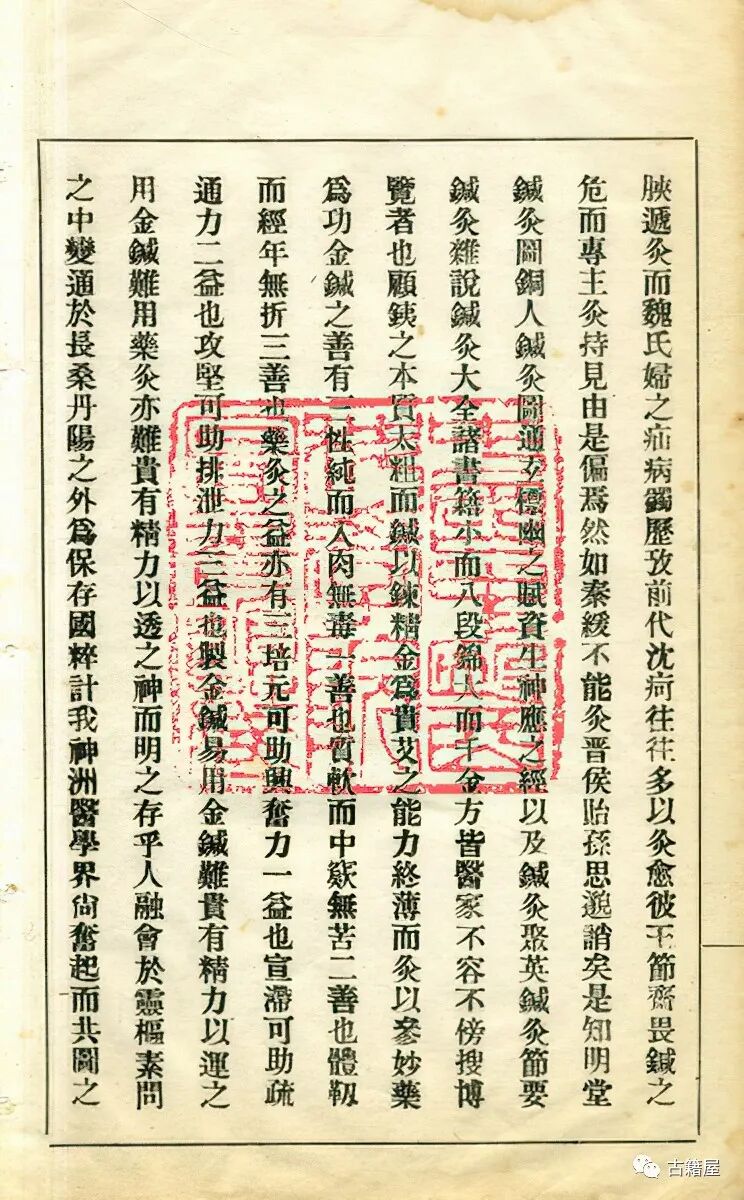 脥遞灸而魏氏婦之疝病蠲歷攷前代沈疴往往多以灸愈彼王節齋畏鍼之
危而專主灸持見由是偏焉然如秦緩不能灸晋侯貽孫思邈誚矣是知明堂
鍼灸圖銅人鍼灸圖通玄標幽之賦資生神應之經以及鍼灸聚英鍼灸節要
鍼灸雜說鍼灸大全諸書籍小而八段錦大而千金方皆醫家不容不傍搜博
覽者也顧銕之本質太粗而鍼以鍊精金爲貴艾之能力終薄而灸以參妙藥
爲功金鍼之善有三性純而入肉無毒一善也質軟而中竅無苦二善也體靱
而經年無折三善也藥灸之益亦有三培元可助興奮力一益也宣滯可助疏
通力二益也攻堅可助排泄力三益也製金鍼易用金鍼難貴有精力以運之
用金鍼難用藥灸亦難貴有精力以透之神而明之存乎人融會於靈樞素問
之中變通於長桑丹陽之外爲保存國粹計我神洲醫學界尙奮起而共圖之
古籍屋